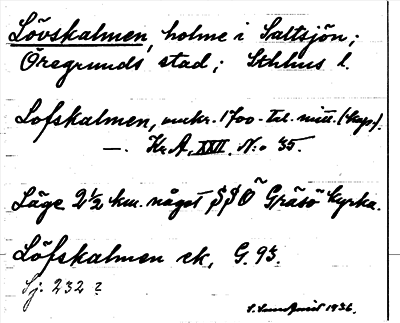 Lövskalmen, holme i Saltsjön;
Öregrunds stad; Sthlms l.
Lofskalmen, omkr. 1700-tal. mitt. (kop.).
—. Kr. A. XXII. N:o 35.
Läge 2½ km. något SSO ~ Gräsö kyrka.
Löfskalmen rk, G. 93.
Sj. 232 ?
1936.